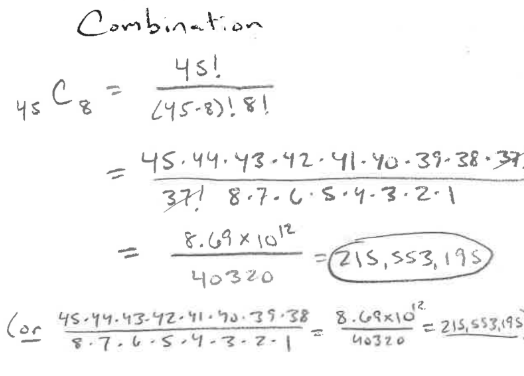 Combination
45C8 = 45! / (45-8)! 8!
= 45·44·43·42·41·40·39·38·37! / 37! 8·7·6·5·4·3·2·1
= 8.69 × 10^12 / 40320 = 215,553,195
(or 45·44·43·42·41·40·39·38 / 8·7·6·5·4·3·2·1 = 8.69×10^12 / 40320 = 215,553,195